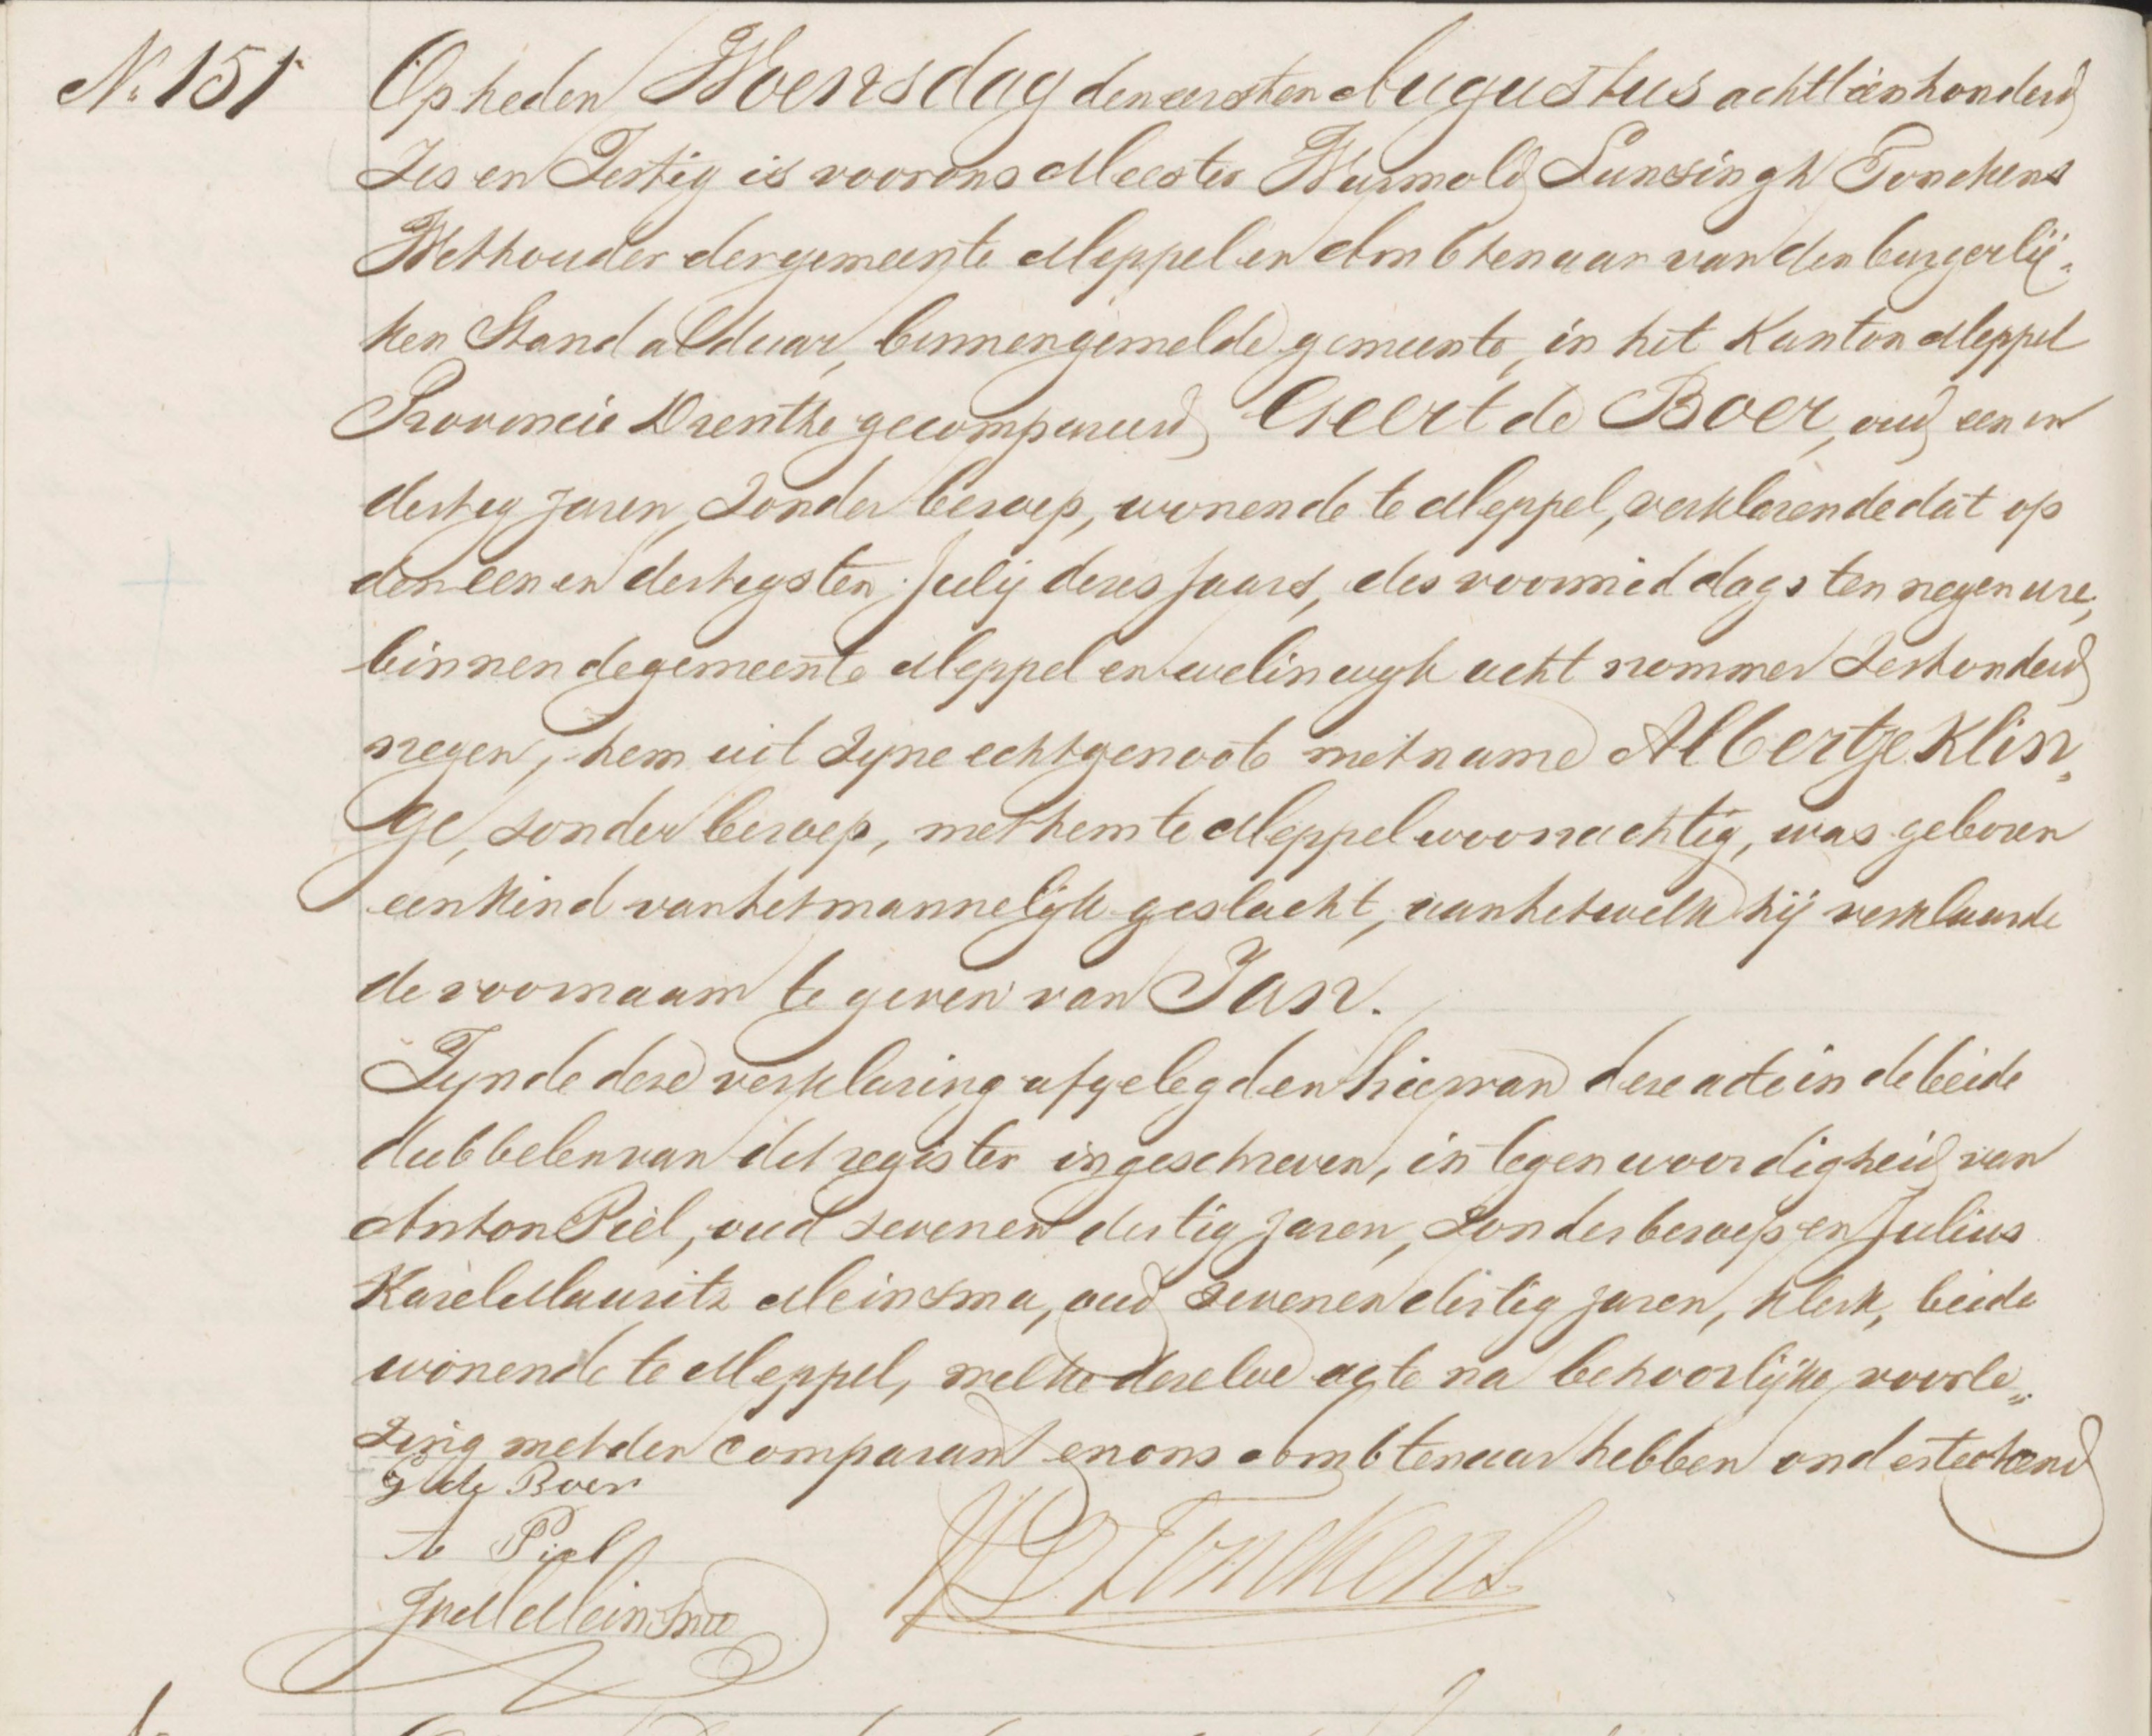 N. 151
Op heden Woensdag den eersten Augustus achttienhonderd
Zes en Zestig is voor ons Meester Warmold Lunsingh Tonckens
Wethouder der gemeente Meppel en Ambtenaar van den burgerlij„
ken Stand aldaar, binnengemelde gemeente, in het Kanton Meppel
Provincie Drenthe gecompareerd Geert de Boer, oud een en
dertig jaren, zonder beroep, wonende te Meppel, verklarende dat op
den een en dertigsten Julij dezes jaars, des voormiddags ten negen ure,
binnen de gemeente Meppel en wel in wyk acht nommer Zeshonderd
negen, hem uit zyne echtgenoote met name Albertje Klin„
ge, zonder beroep, met hem te Meppel woonachtig, was geboren
een kind van het mannelijk geslacht, aan hetwelk hij verklaarde
de voornaam te geven van Jan.
Zynde deze verklaring afgelegd en hiervan deze acte in de beide
dubbelen van dit register ingeschreven, in tegenwoordigheid van
Anton Piel, oud zeven en dertig jaren, zonder beroep en Julius
Karel Mauritz Meinsma, oud zeven en dertig jaren, klerk, beide
wonende te Meppel, welke dezelve acte na behoorlijke voorle„
zing met den comparant en ons ambtenaar hebben onderteekend
G de Boer
A Piel
JKMMeinsma
WLTonckens